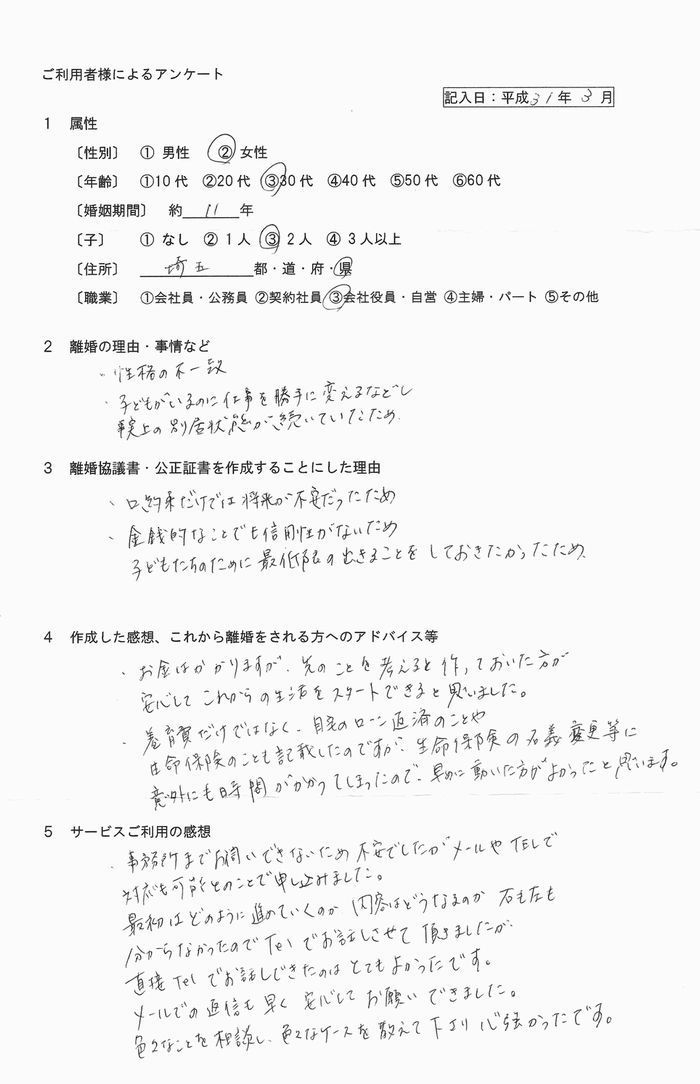 ご利用者様によるアンケート
記入日：平成 31 年 3 月
1 属性
〔性別〕 ① 男性 ② 女性
〔年齢〕 ①10代 ②20代 ③30代 ④40代 ⑤50代 ⑥60代
〔婚姻期間〕 約 11 年
〔子〕 ① なし ② 1人 ③ 2人 ④ 3人以上
〔住所〕 埼玉 都・道・府・県
〔職業〕 ①会社員・公務員 ②契約社員 ③会社役員・自営 ④主婦・パート ⑤その他
2 離婚の理由・事情など
・性格の不一致
・子どもがいるのに仕事を勝手に変えるなどし
事実上の別居状態が続いていたため.
3 離婚協議書・公正証書を作成することにした理由
・口約束だけでは将来が不安だったため
・金銭的なことでも信用性がないため
子どもたちのために最低限の出きることをしておきたかったため.
4 作成した感想、これから離婚をされる方へのアドバイス等
・お金はかかりますが、先のことを考えると作っておいた方が
安心してこれからの生活をスタートできると思いました。
・養育費だけではなく、自宅のローン返済のことや
生命保険のことも記載したのですが、生命保険の名義変更等に
意外にも時間がかかってしまったので、早めに動いた方がよかったと思います。
5 サービスご利用の感想
・事務所までお伺いできないため不安でしたがメールやTELで
対応も可能とのことで申し込みました。
最初はどのように進めていくのか 内容はどうなるのか 右も左も
分からなかったのでTelでお話しさせて頂きましたが、
直接Telでお話しできたのはとてもよかったです。
メールでの返信も早く安心してお願いできました。
色々なことを相談し、色々なケースを教えて下さり心強かったです。